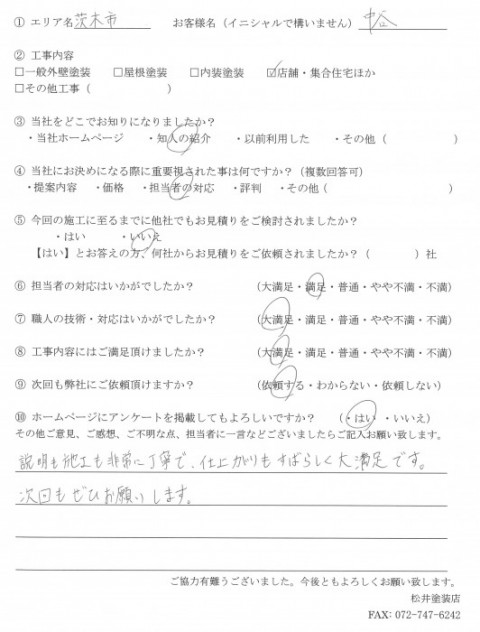 ① エリア名 茨木市 お客様名（イニシャルで構いません） 中谷
② 工事内容
□一般外壁塗装 □屋根塗装 □内装塗装 ☑店舗・集合住宅ほか
□その他工事（ ）
③ 当社をどこでお知りになりましたか？
・当社ホームページ ・知人の紹介 ・以前利用した ・その他（ ）
④ 当社にお決めになる際に重要視された事は何ですか？（複数回答可）
・提案内容 ・価格 ・担当者の対応 ・評判 ・その他（ ）
⑤ 今回の施工に至るまでに他社でもお見積りをご検討されましたか？
・はい ・いいえ
【はい】とお答えの方、何社からお見積りをご依頼されましたか？（ ）社
⑥ 担当者の対応はいかがでしたか？ （大満足・満足・普通・やや不満・不満）
⑦ 職人の技術・対応はいかがでしたか？ （大満足・満足・普通・やや不満・不満）
⑧ 工事内容にはご満足頂けましたか？ （大満足・満足・普通・やや不満・不満）
⑨ 次回も弊社にご依頼頂けますか？ （依頼する・わからない・依頼しない）
⑩ ホームページにアンケートを掲載してもよろしいですか？ （・はい・いいえ）
その他ご意見、ご感想、ご不明な点、担当者に一言などございましたらご記入お願い致します。
説明も施工も非常に丁寧で、仕上がりもすばらしく大満足です。
次回もぜひお願いします。
ご協力有難うございました。今後ともよろしくお願い致します。
松井塗装店
FAX: 072-747-6242